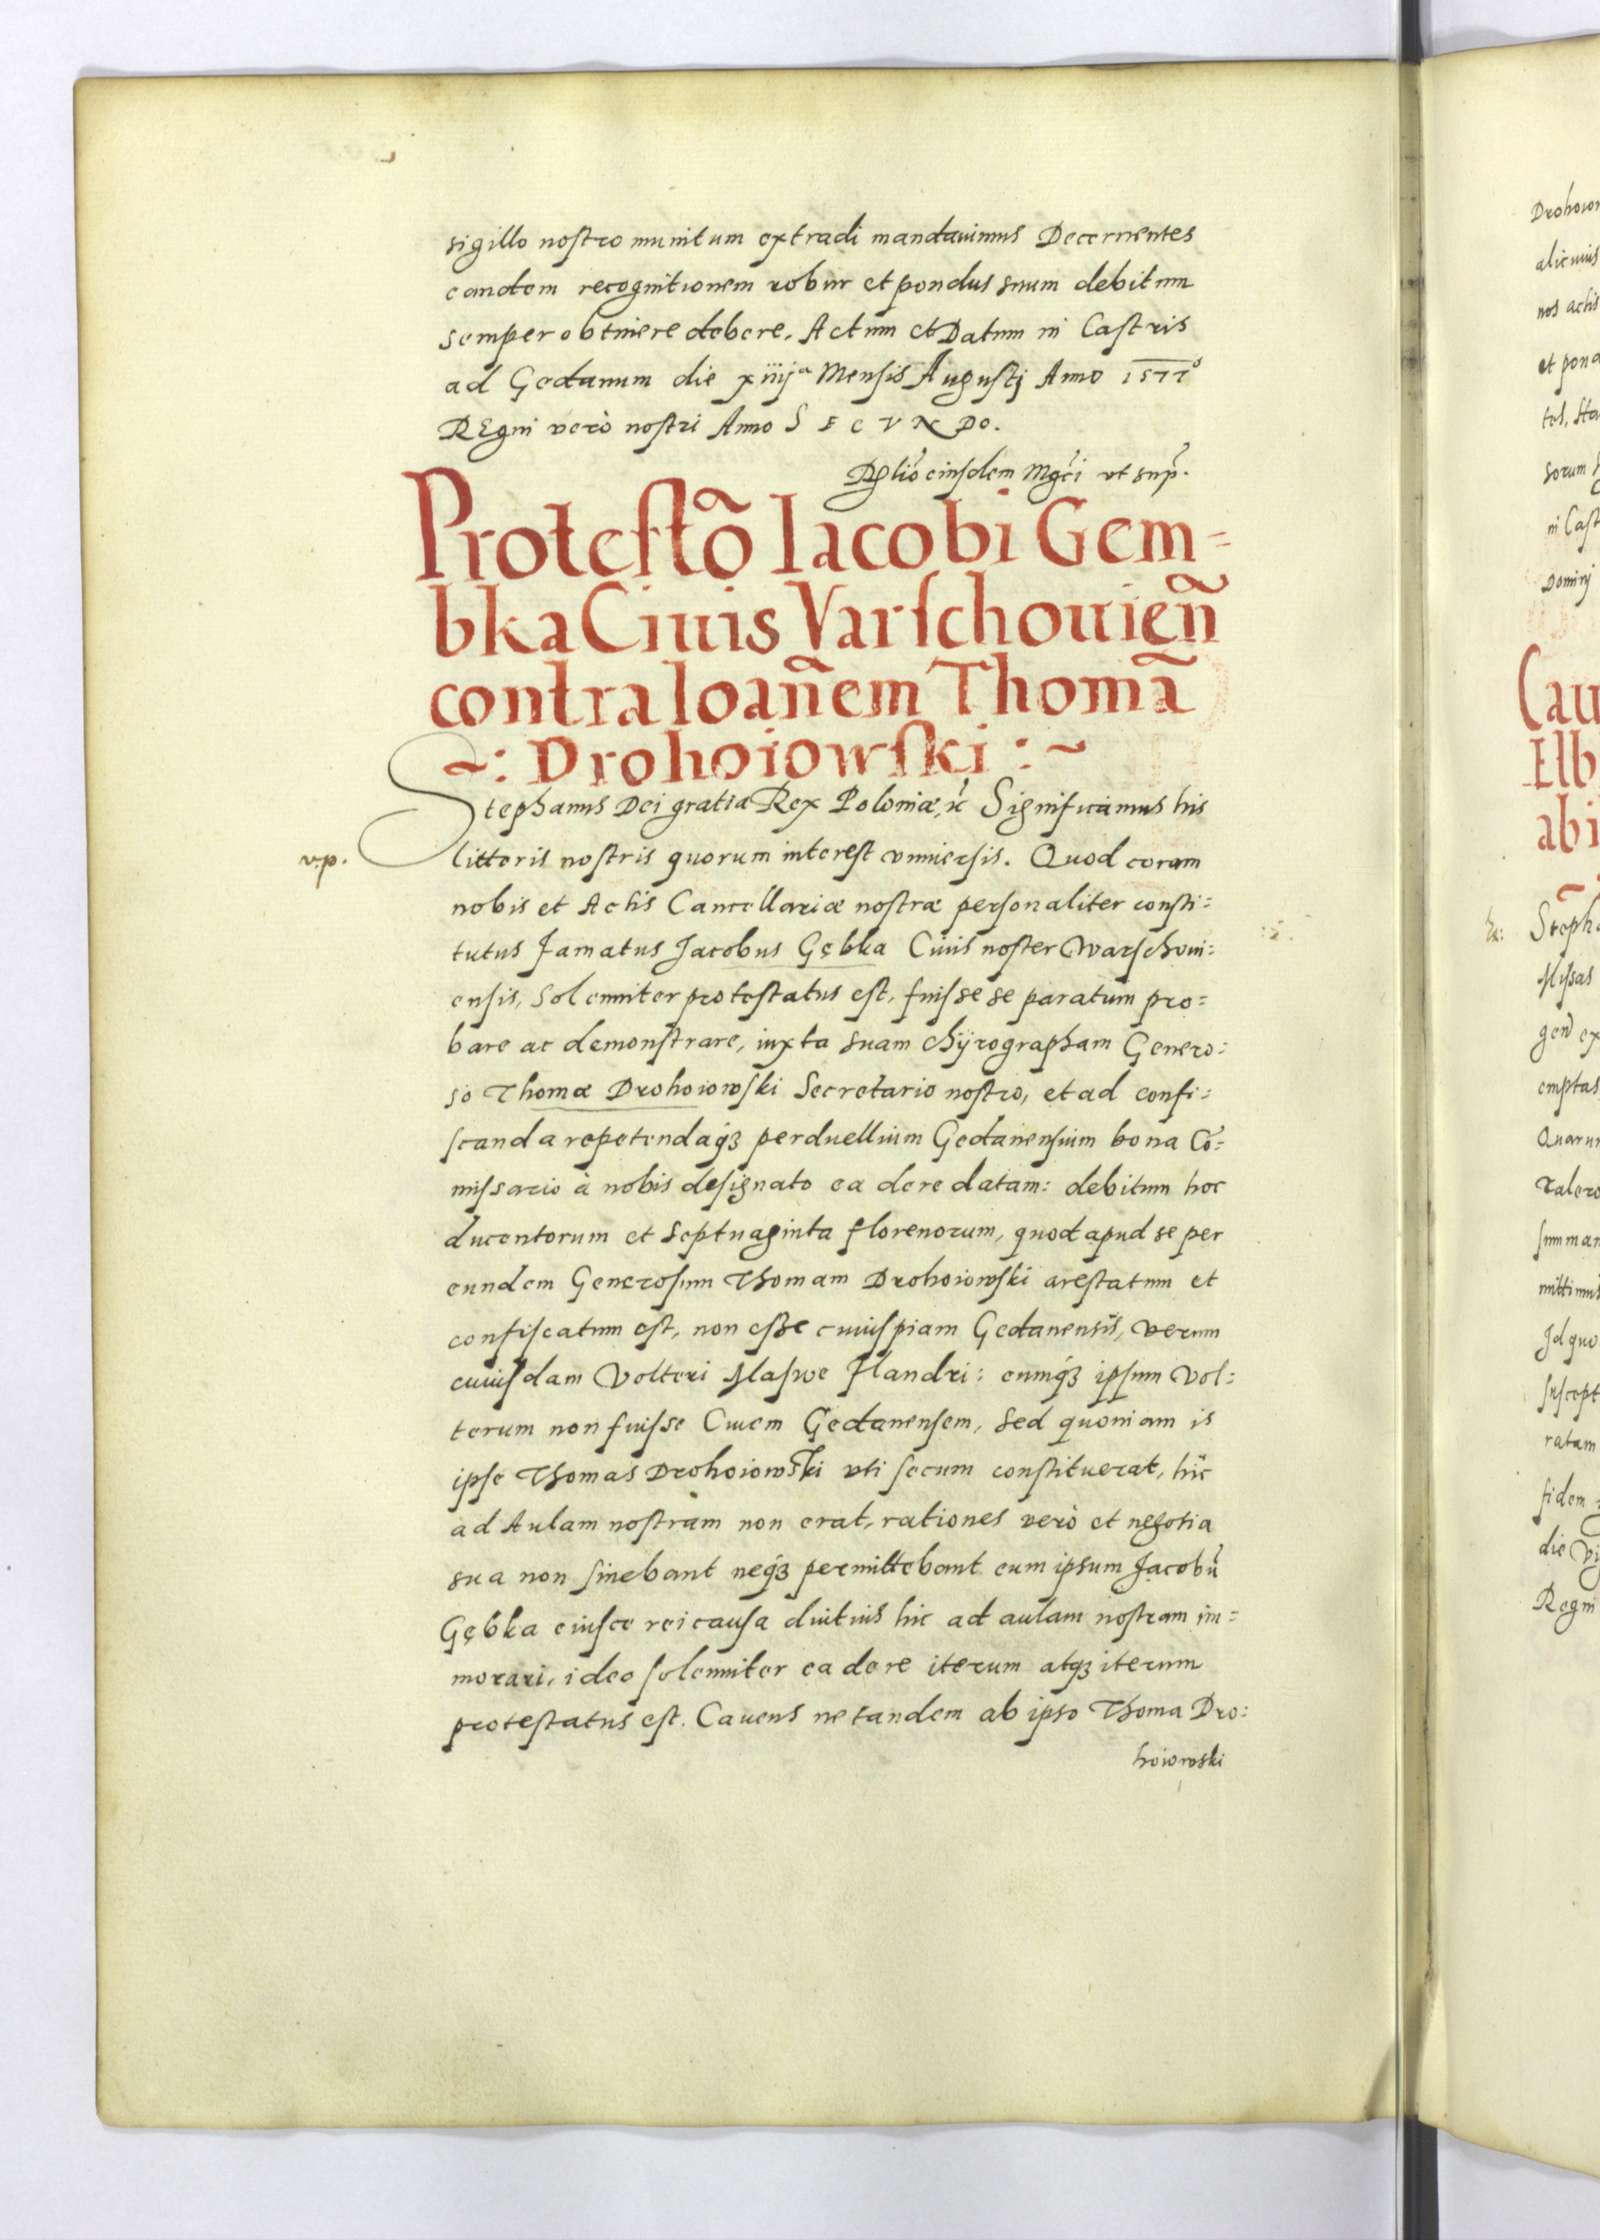 sigillo nostro munitum extradi mandauimus Decernentes
eandem recognitionem robur et pondus suum debitum
semper obtinere debere. Actum et Datum in Castris
ad Gedanum die xiiijᵃ Mensis Augusti Anno 1577º
REgni verò nostri Anno SECVNDO.
eiusdem Mgci vt sup.
Protestõ Iacobi Gem-
bka Ciuis Varschouieñ
contra Ioañem Thomã
~: Drohoiowski :~
Stephanus Dei gratia Rex Poloniæ, Significamus his
v.p.
litteris nostris quorum interest vniuersis. Quod coram
nobis et Actis Cancellariæ nostræ personaliter consti:
tutus Famatus Jacobus Gębka Ciuis noster Warschoui:
ensis, Solenniter protestatus est, fuisse se paratum pro=
bare ac demonstrare, iuxta suam chÿrographam Genero:
so Thomæ Drohoiowski Secretario nostro, et ad confi:
scanda repetendaqꝫ perduellium Gedanensium bona Cõ=
missario à nobis designato ea de re datam: debitum hoc
ducentorum et Septuaginta florenorum, quod apud se per
eundem Generosum Thomam Drohoiowski arestatum et
confiscatum est, non esse cuiuspiam Gedanensis, verum
cuiusdam Volteri Flandri: eumqꝫ ipsum Vol:
terum non fuisse Ciuem Gedanensem, Sed quoniam is
ipse Thomas Drohoiowski vti secum constituerat, hic
ad Aulam nostram non erat, rationes verò et negotia
sua non sinebant neqꝫ permittebant eum ipsum Jacobũ
Gębka eiusce rei causa diutius hic ad aulam nostram im=
morari, ideo solenniter ea de re iterum atqꝫ iterum
protestatus est. Cauens ne tandem ab ipso Thoma Dro:
hoiowski
Drohoio
alicuius
nos actis
et pond
sorum
in Cast
Domini
Cau
Elb
abi
Steph
emptas
Quarum
Talero
summam
mittimus
Id quo
suscept
ratam
fidem
die
Regni